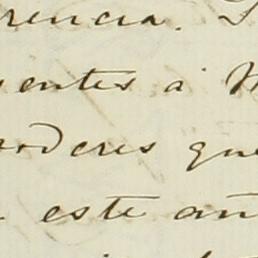 rencia.
entes á
oderes que
este añ